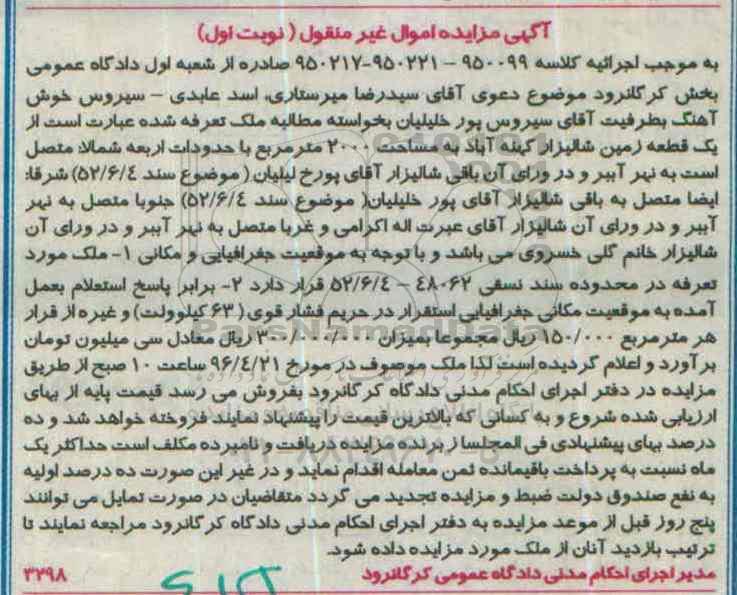 آگهی مزایده اموال غیر منقول ( نوبت اول)
به موجب اجرائیه کلاسه ۹۵۰۰۹۹ – ۹۵۰۲۲۱-۹۵۰۲۱۷ صادره از شعبه اول دادگاه عمومی
بخش کرگانرود موضوع دعوی آقای سیدرضا میرستاری، اسد عابدی – سیروس خوش
آهنگ بطرفیت آقای سیروس پور خلیلیان بخواسته مطالبه ملک تعرفه شده عبارت است از
یک قطعه زمین شالیزار کهنه آباد به مساحت ۲۰۰۰ مترمربع با حدودات اربعه شمالا: متصل
است به نهر آببر و در ورای آن باقی شالیزار آقای پورخ لیلیان ( موضوع سند ۵۲/۶/٤) شرقا:
ایضا متصل به باقی شالیزار آقای پور خلیلیان( موضوع سند ۵۲/۶/٤) جنوبا متصل به نهر
آببر و در ورای آن شالیزار آقای عبرت اله اکرامی و غربا متصل به نهر آببر و در ورای آن
شالیزار خانم گلی خسروی می باشد و با توجه به موقعیت جغرافیایی و مکانی ۱- ملک مورد
تعرفه در محدوده سند نسقی ٤۸۰۶۲ – ۵۲/۶/٤ قرار دارد ۲- برابر پاسخ استعلام بعمل
آمده به موقعیت مکانی جغرافیایی استقرار در حریم فشار قوی ( ۶۳ کیلوولت) و غیره از قرار
هر مترمربع ۱۵۰/۰۰۰ ریال مجموعا بمیزان ۳۰۰/۰۰۰/۰۰۰ ریال معادل سی میلیون تومان
برآورد و اعلام گردیده است لذا ملک موصوف در مورخ ۹۶/٤/۲۱ ساعت ۱۰ صبح از طریق
مزایده در دفتر اجرای احکام مدنی دادگاه کرگانرود بفروش می رسد قیمت پایه از بهای
ارزیابی شده شروع و به کسانی که بالاترین قیمت را پیشنهاد نمایند فروخته خواهد شد و ده
درصد بهای پیشنهادی فی المجلسا ز برنده مزایده دریافت و نامبرده مکلف است حداکثر یک
ماه نسبت به پرداخت باقیمانده ثمن معامله اقدام نماید و در غیر این صورت ده درصد اولیه
به نفع صندوق دولت ضبط و مزایده تجدید می گردد متقاضیان در صورت تمایل می توانند
پنج روز قبل از موعد مزایده به دفتر اجرای احکام مدنی دادگاه کرگانرود مراجعه نمایند تا
ترتیب بازدید آنان از ملک مورد مزایده داده شود.
مدیر اجرای احکام مدنی دادگاه عمومی کرگانرود
۳۲۹۸
ParsNamadData